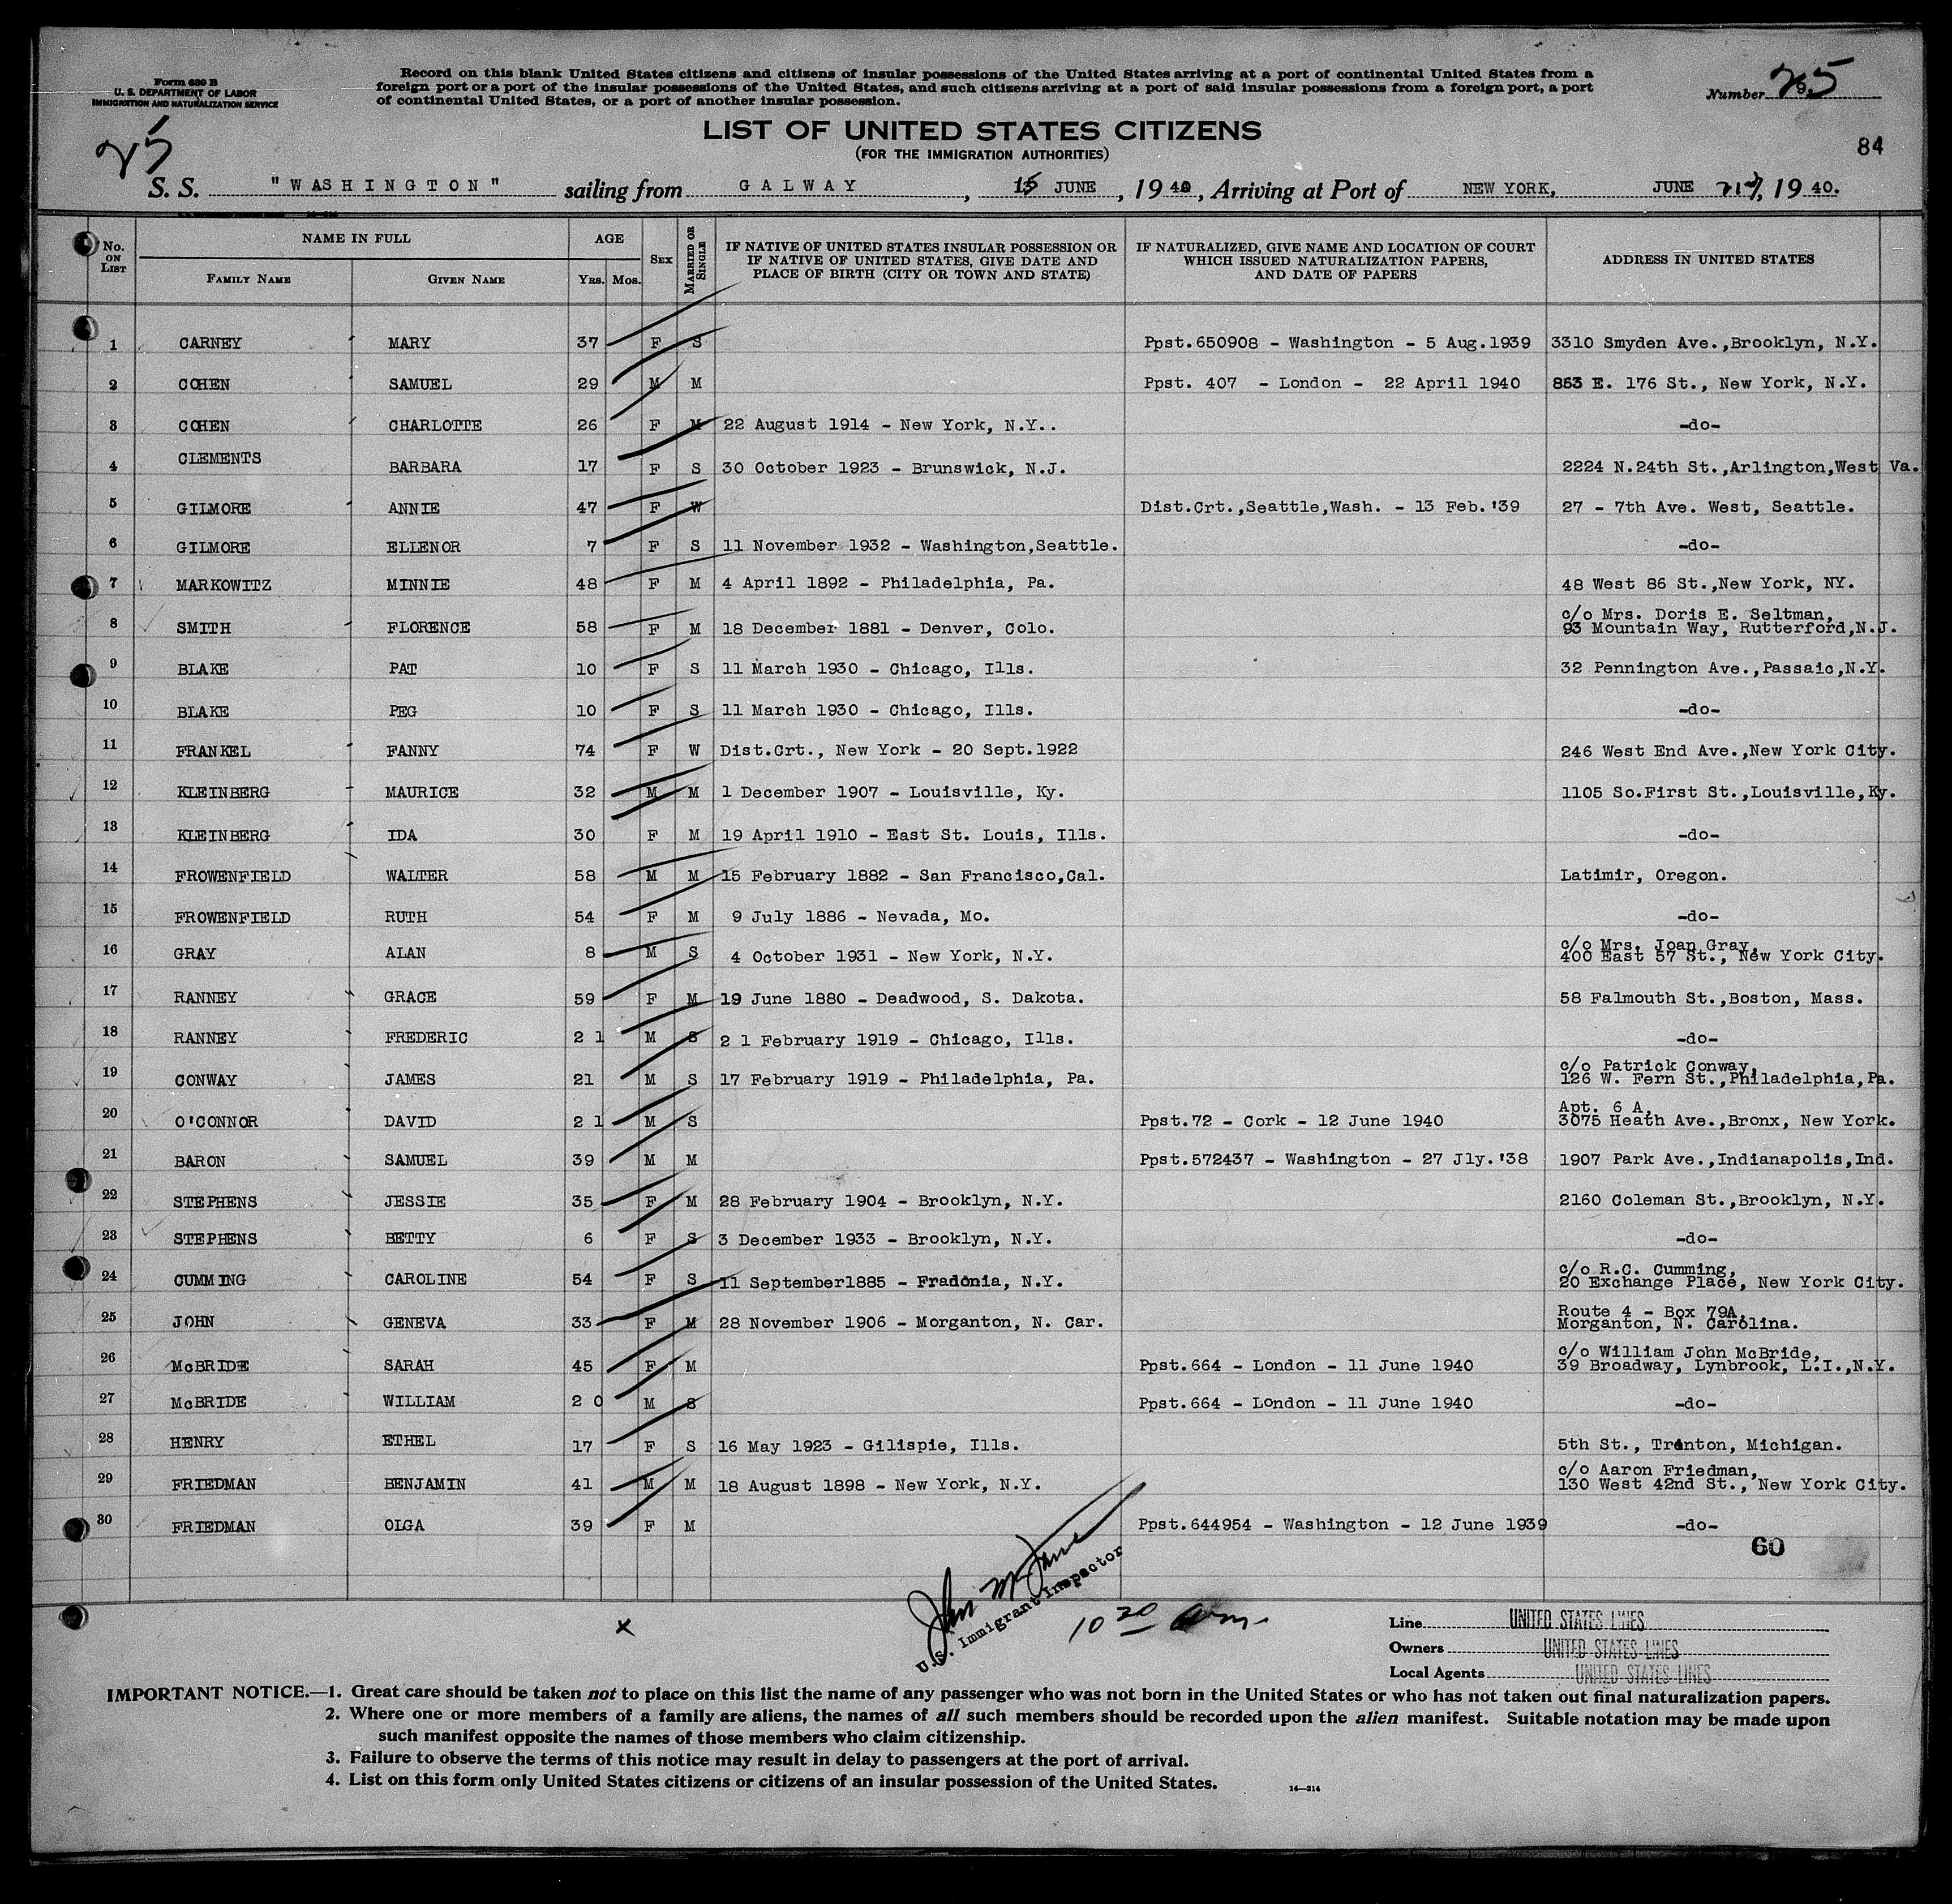 Form 630 B
U. S. DEPARTMENT OF LABOR
IMMIGRATION AND NATURALIZATION SERVICE
Record on this blank United States citizens and citizens of insular possessions of the United States arriving at a port of continental United States from a
foreign port or a port of the insular possessions of the United States, and such citizens arriving at a port of said insular possessions from a foreign port, a port
of continental United States, or a port of another insular possession.
Number 25
25
LIST OF UNITED STATES CITIZENS
(FOR THE IMMIGRATION AUTHORITIES)
84
S. S. "WASHINGTON" sailing from GALWAY, 15 JUNE, 19 40, Arriving at Port of NEW YORK, JUNE 21, 19 40.
No. ON LIST
NAME IN FULL
FAMILY NAME GIVEN NAME
AGE
YRS. MOS.
SEX
MARRIED OR SINGLE
IF NATIVE OF UNITED STATES INSULAR POSSESSION OR
IF NATIVE OF UNITED STATES, GIVE DATE AND
PLACE OF BIRTH (CITY OR TOWN AND STATE)
IF NATURALIZED, GIVE NAME AND LOCATION OF COURT
WHICH ISSUED NATURALIZATION PAPERS,
AND DATE OF PAPERS
ADDRESS IN UNITED STATES
1 CARNEY MARY 37 F S Ppst.650908 - Washington - 5 Aug.1939 3310 Smyden Ave.,Brooklyn, N.Y.
2 COHEN SAMUEL 29 M M Ppst. 407 - London - 22 April 1940 863 E. 176 St., New York, N.Y.
3 COHEN CHARLOTTE 26 F M 22 August 1914 - New York, N.Y.. -do-
4 CLEMENTS BARBARA 17 F S 30 October 1923 - Brunswick, N.J. 2224 N.24th St.,Arlington,West Va.
5 GILMORE ANNIE 47 F W Dist.Crt.,Seattle,Wash. - 13 Feb.'39 27 - 7th Ave. West, Seattle.
6 GILMORE ELLENOR 7 F S 11 November 1932 - Washington,Seattle. -do-
7 MARKOWITZ MINNIE 48 F M 4 April 1892 - Philadelphia, Pa. 48 West 86 St.,New York, NY.
8 SMITH FLORENCE 58 F M 18 December 1881 - Denver, Colo. c/o Mrs. Doris E. Seltman,
93 Mountain Way, Rutterford,N.J.
9 BLAKE PAT 10 F S 11 March 1930 - Chicago, Ills. 32 Pennington Ave.,Passaic,N.Y.
10 BLAKE PEG 10 F S 11 March 1930 - Chicago, Ills. -do-
11 FRANKEL FANNY 74 F W Dist.Crt., New York - 20 Sept.1922 246 West End Ave.,New York City.
12 KLEINBERG MAURICE 32 M M 1 December 1907 - Louisville, Ky. 1105 So.First St.,Louisville,Ky.
13 KLEINBERG IDA 30 F M 19 April 1910 - East St. Louis, Ills. -do-
14 FROWENFIELD WALTER 58 M M 15 February 1882 - San Francisco,Cal. Latimir, Oregon.
15 FROWENFIELD RUTH 54 F M 9 July 1886 - Nevada, Mo. -do-
16 GRAY ALAN 8 M S 4 October 1931 - New York, N.Y. c/o Mrs. Joan Gray,
400 East 57 St., New York City.
17 RANNEY GRACE 59 F M 19 June 1880 - Deadwood, S. Dakota. 58 Falmouth St.,Boston, Mass.
18 RANNEY FREDERIC 2 1 M S 2 1 February 1919 - Chicago, Ills. -do-
19 CONWAY JAMES 21 M S 17 February 1919 - Philadelphia, Pa. c/o Patrick Conway,
126 W. Fern St.,Philadelphia,Pa.
20 O'CONNOR DAVID 2 1 M S Ppst.72 - Cork - 12 June 1940 Apt. 6 A,
3075 Heath Ave.,Bronx, New York.
21 BARON SAMUEL 39 M M Ppst.572437 - Washington - 27 Jly.'38 1907 Park Ave.,Indianapolis,Ind.
22 STEPHENS JESSIE 35 F M 28 February 1904 - Brooklyn, N.Y. 2160 Coleman St.,Brooklyn, N.Y.
23 STEPHENS BETTY 6 F S 3 December 1933 - Brooklyn, N.Y. -do-
24 CUMMING CAROLINE 54 F S 11 September1885 - Fradonia, N.Y. c/o R.C. Cumming,
20 Exchange Place, New York City.
25 JOHN GENEVA 33 F M 28 November 1906 - Morganton, N. Car. Route 4 - Box 79A,
Morganton, N. Carolina.
26 McBRIDE SARAH 45 F M Ppst.664 - London - 11 June 1940 c/o William John McBride,
39 Broadway, Lynbrook, L.I.,N.Y.
27 McBRIDE WILLIAM 2 0 M S Ppst.664 - London - 11 June 1940 -do-
28 HENRY ETHEL 17 F S 16 May 1923 - Gilispie, Ills. 5th St., Trenton, Michigan.
29 FRIEDMAN BENJAMIN 41 M M 18 August 1898 - New York, N.Y. c/o Aaron Friedman,
130 West 42nd St., New York City.
30 FRIEDMAN OLGA 39 F M Ppst.644954 - Washington - 12 June 1939 -do-
60
x
U.S. Immigrant Inspector
10 20 am
Line UNITED STATES LINES
Owners UNITED STATES LINES
Local Agents UNITED STATES LINES
IMPORTANT NOTICE.—1. Great care should be taken not to place on this list the name of any passenger who was not born in the United States or who has not taken out final naturalization papers.
2. Where one or more members of a family are aliens, the names of all such members should be recorded upon the alien manifest. Suitable notation may be made upon
such manifest opposite the names of those members who claim citizenship.
3. Failure to observe the terms of this notice may result in delay to passengers at the port of arrival.
4. List on this form only United States citizens or citizens of an insular possession of the United States.
14—214